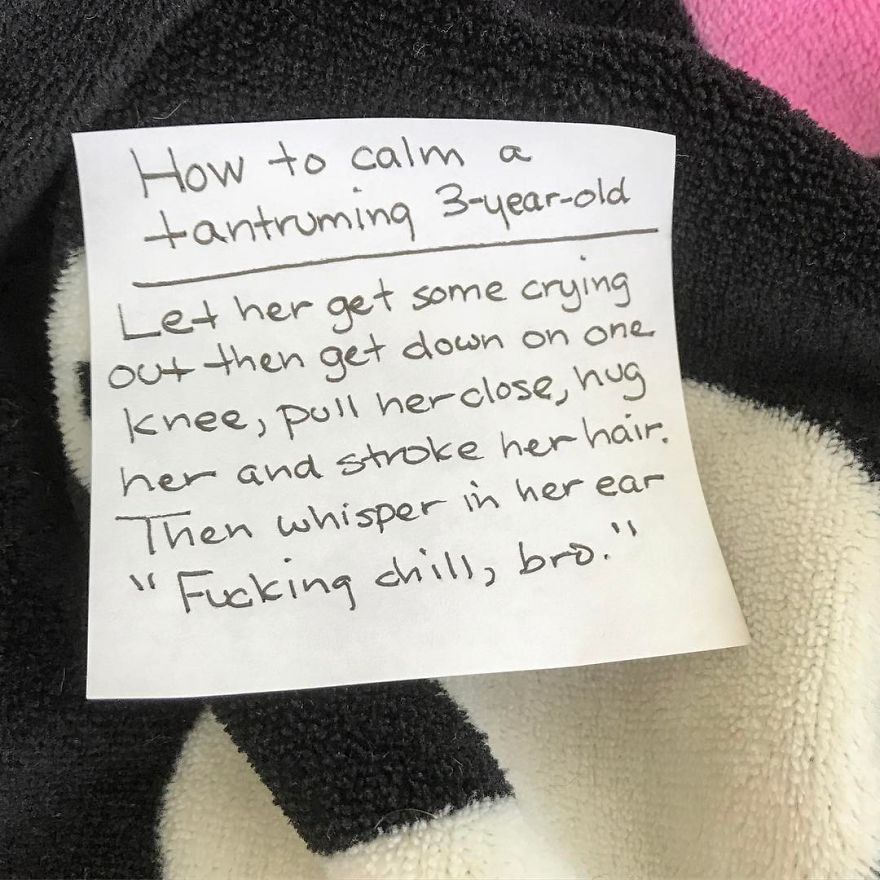 How to calm a
tantruming 3-year-old
Let her get some crying
out then get down on one
knee, pull her close, hug
her and stroke her hair.
Then whisper in her ear
"Fucking chill, bro."